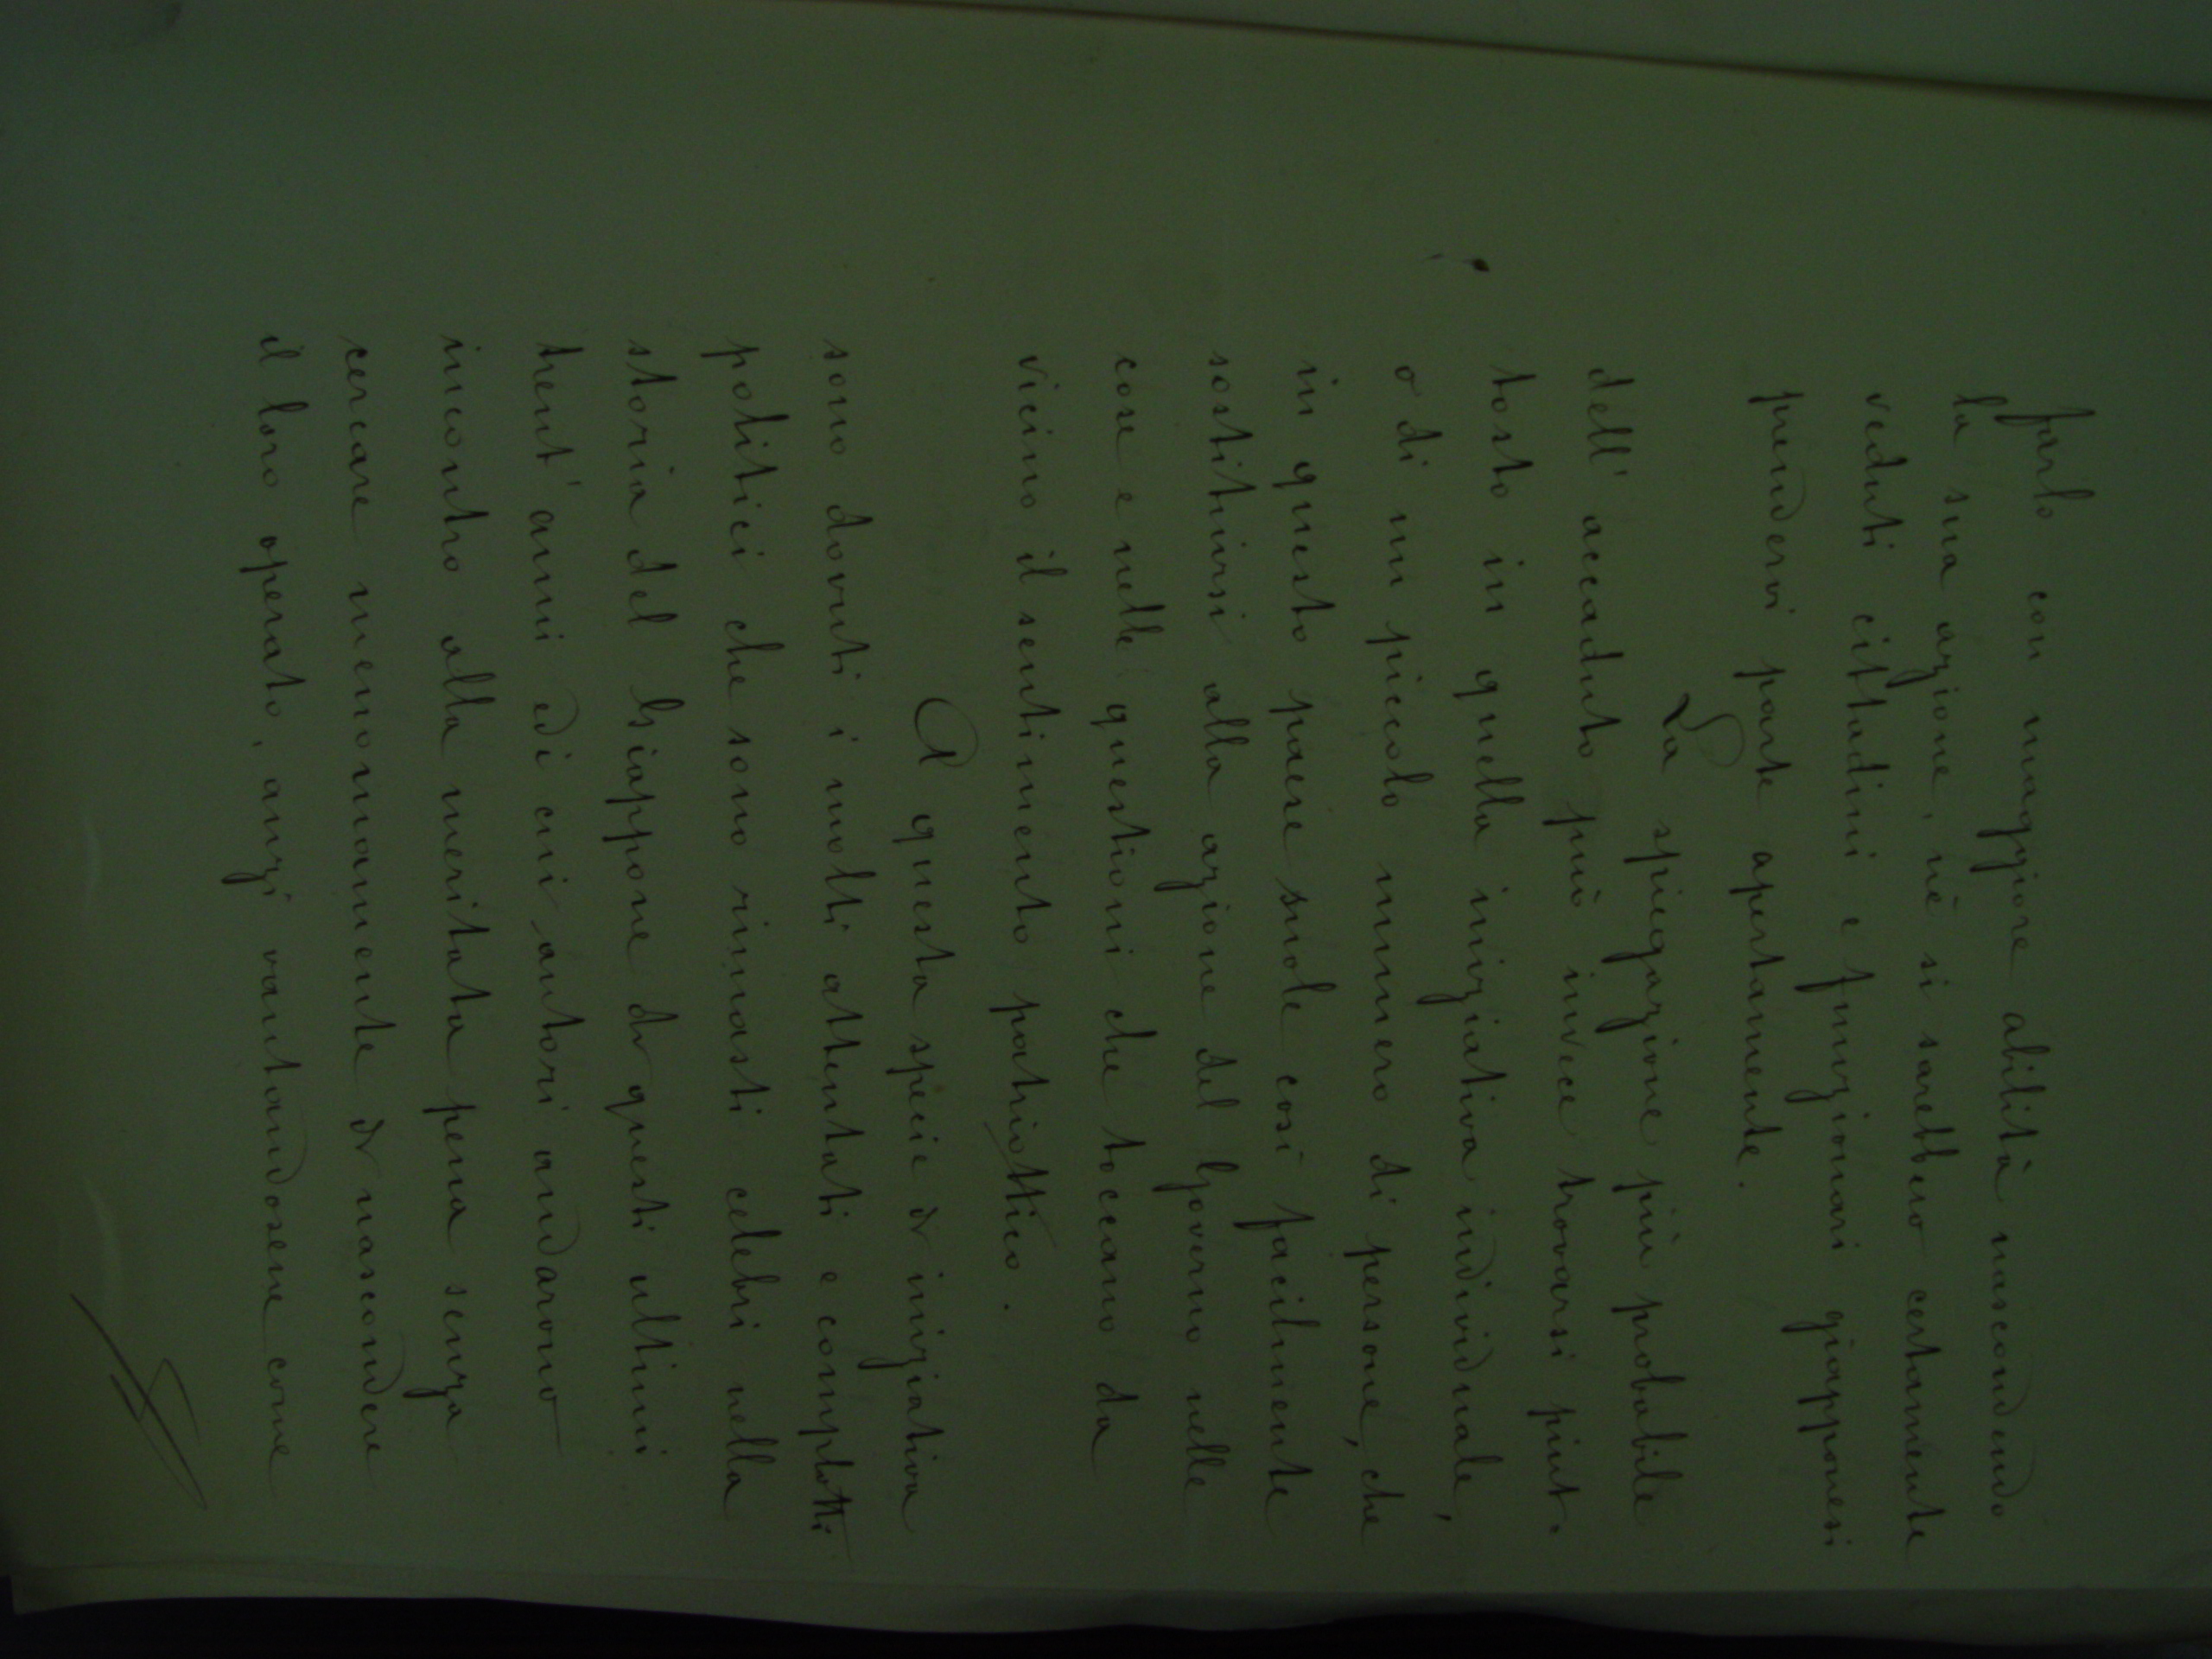 farlo con maggiore abilità nascondendo
la sua azione, nè si sarebbero certamente
veduti cittadini e funzionari giapponesi
prendervi parte apertamente.
La spiegazione più probabile
dell' accaduto può invece trovarsi piut-
tosto in quella iniziativa individuale,
o di un piccolo numero di persone, che
in questo paese suole così facilmente
sostituirsi alla azione del Governo nelle
cose e nelle questioni che toccano da
vicino il sentimento patriottico.
A questa specie di iniziativa
sono dovuti i molti attentati e complotti
politici che sono rimasti celebri nella
storia del Giappone di questi ultimi
trent' anni ed i cui autori andarono
incontro alla meritata pena senza
cercare menomamente di nascondere
il loro operato, anzi vantandosene come